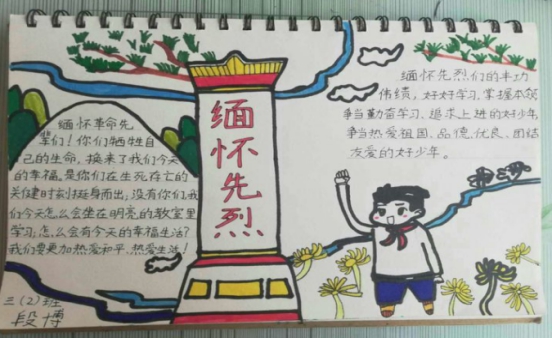 缅怀革命先
辈们！你们牺牲自
己的生命，换来了我们今天
的幸福，是你们在生死存亡的
关健时刻挺身而出，没有你们，我
们今天怎么会坐在明亮的教室里
学习，怎么会有今天的幸福生活？
我们要更加热爱和平，热爱生活！
三（2）班
段博
缅怀先烈
缅怀先烈们的丰功
伟绩，好好学习，掌握本领
争当勤奋学习、追求上进的好少年，
争当热爱祖国、品德优良、团结
友爱的好少年。